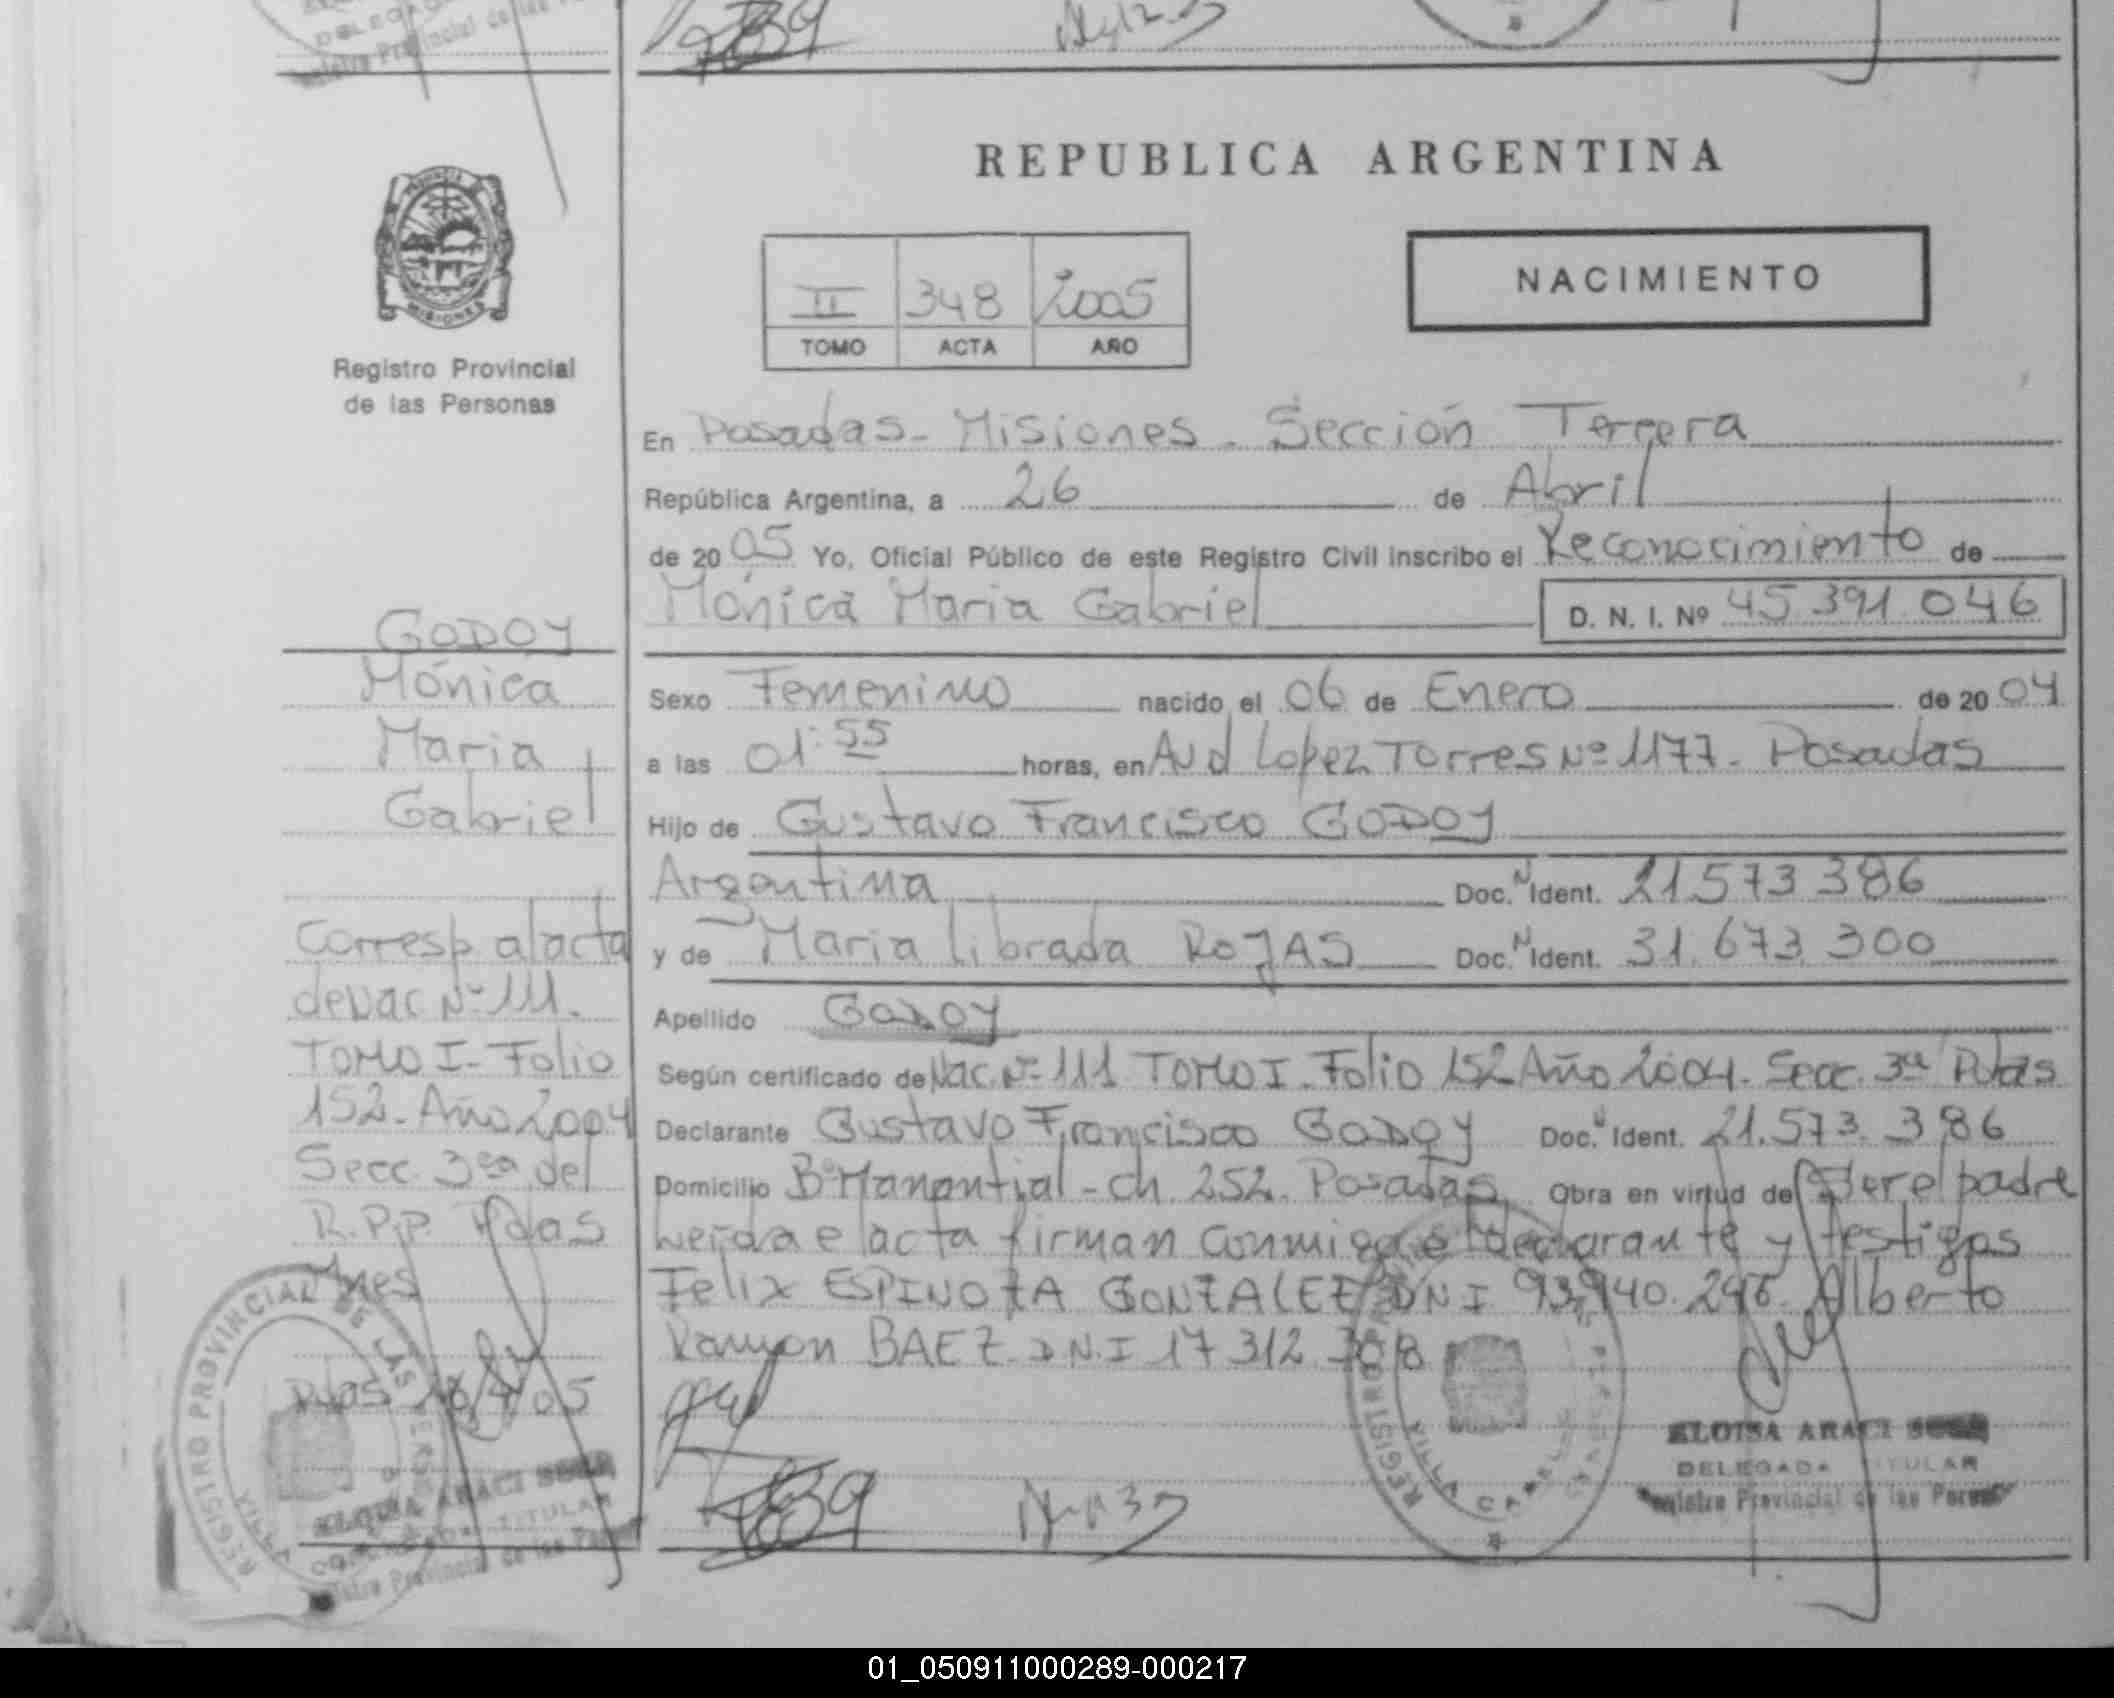 REPUBLICA ARGENTINA
PROVINCIA DE MISIONES
Registro Provincial
de las Personas
NACIMIENTO
II 348 2005
TOMO ACTA AÑO
En Posadas - Misiones - Sección Tercera
República Argentina, a 26 de Abril
de 2005 Yo, Oficial Público de este Registro Civil inscribo el Reconocimiento de
Mónica Maria Gabriel D. N. I. Nº 45.391.046
Sexo Femenino nacido el 06 de Enero de 2004
a las 01:55 horas, en Avd Lopez Torres Nº 1177 - Posadas
Hijo de Gustavo Francisco GODOY
Argentina Doc. N Ident. 21.573.386
y de Maria Librada ROJAS Doc. N Ident. 31.673.300
Apellido GODOY
Según certificado de Nac. Nº 111 TOMO I - Folio 152 Año 2004 - Secc. 3ra Pdas
Declarante Gustavo Francisco GODOY Doc. N Ident. 21.573.386
Domicilio Bº Manantial - ch. 252. Posadas Obra en virtud de Ser el padre
Leída el acta firman conmigo el declarante y testigos
Felix ESPINOZA GONZALEZ DNI 93.940.246. Alberto
Ramon BAEZ DNI 17 312 308
GODOY
Mónica
Maria
Gabriel
Corresp. al acta
de Nac Nº 111.
TOMO I - Folio
152 - Año 2004
Secc. 3ra del
R.P.P. Pdas
Mnes
Pdas 26/4/05
REGISTRO PROVINCIAL DE LAS PERSONAS
VILLA CABELLO
ELOISA ARACI
DELEGADA TITULAR
Registro Provincial de las Personas
ELOISA ARACI
DELEGADA TITULAR
Registro Provincial de las Personas
01_050911000289-000217